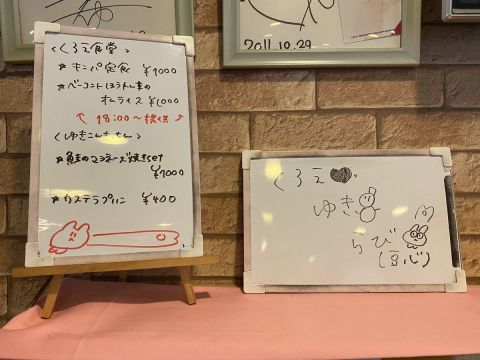 2011.10.29
<くろえ食堂>
★キンパ定食 ¥1000
★ベーコンとほうれん草の
オムライス ¥1,000
18:00〜提供
★鮭のマヨネーズ焼きset
¥1000
★カステラプリン ¥400
くろえ♥
ゆき
らび